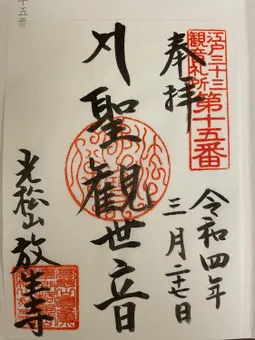 十五番
江戸三十三
観音札所
第十五番
奉拝
令和四年
三月二十七日
聖観世音
光松山放生寺